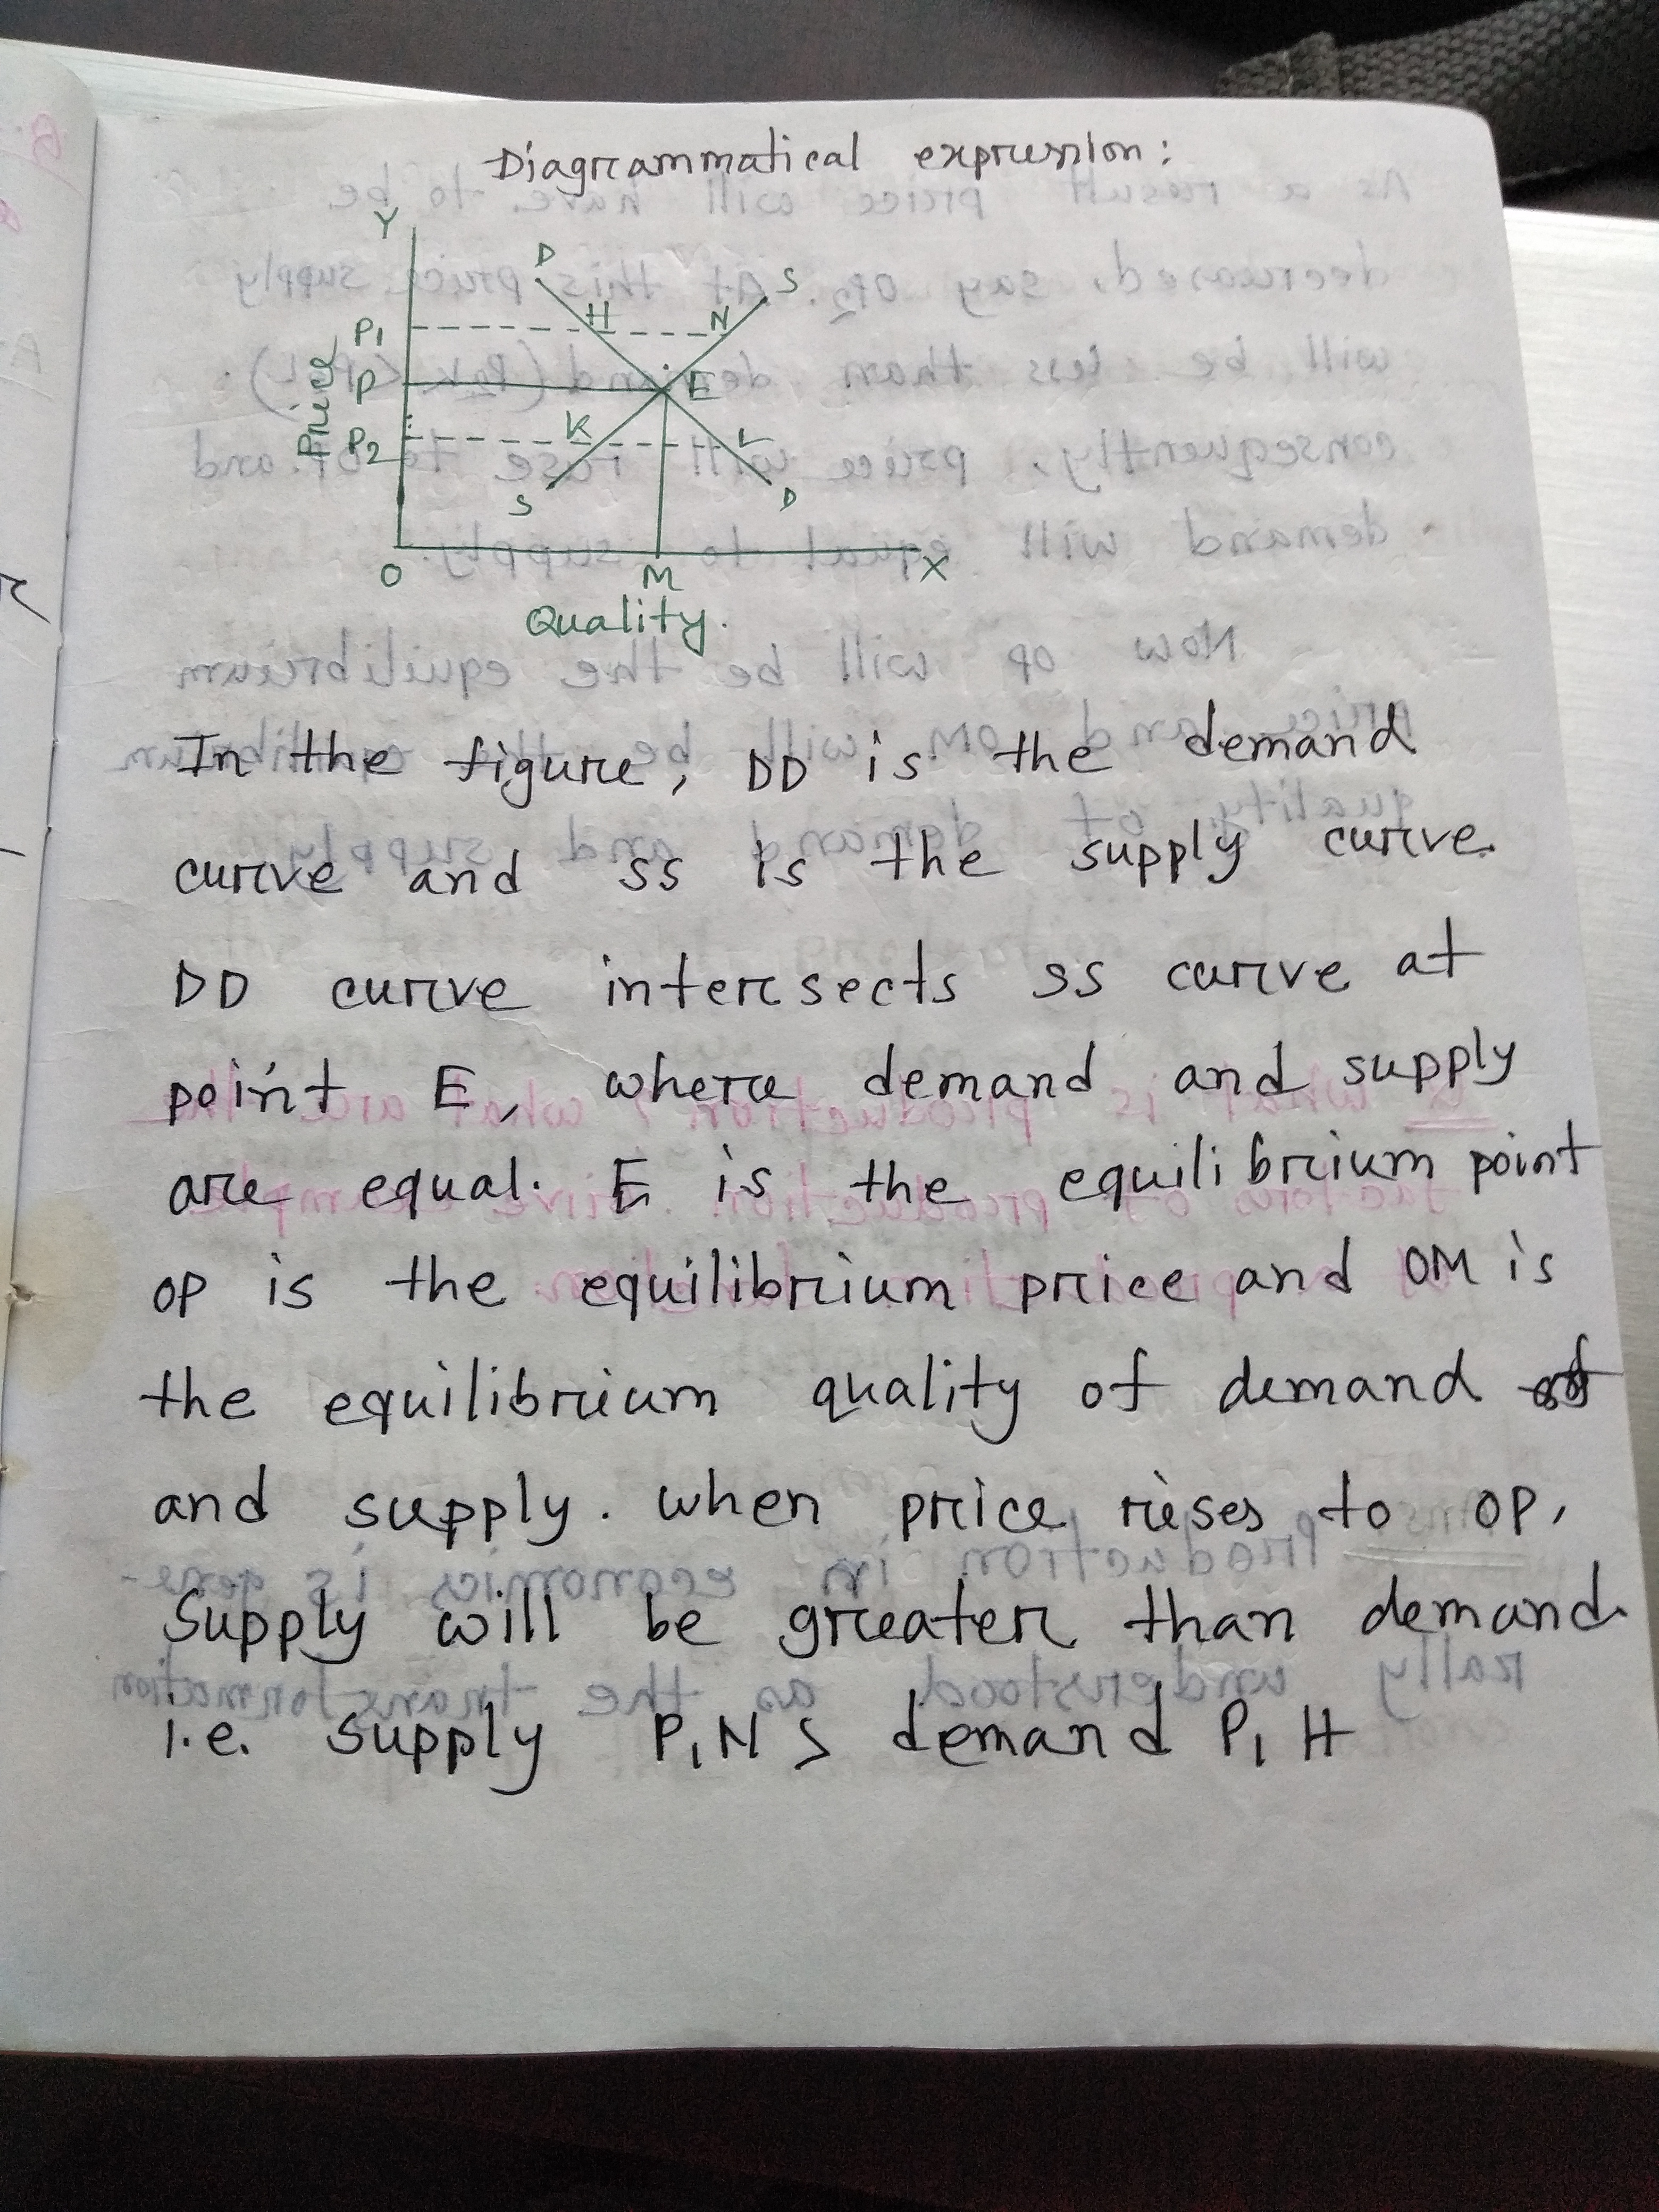 Diagrammatical expression:
Y
D
S
P1
H
N
Price
P
E
P2
K
L
S
D
O
M
X
Quality.
In the figure, DD is the demand
curve and SS is the supply curve.
DD curve intersects SS curve at
point E, where demand and supply
are equal. E is the equilibrium point
OP is the equilibrium price and OM is
the equilibrium quality of demand
and supply. when price rises to OP,
Supply will be greater than demand.
i.e. supply P1N > demand P1H